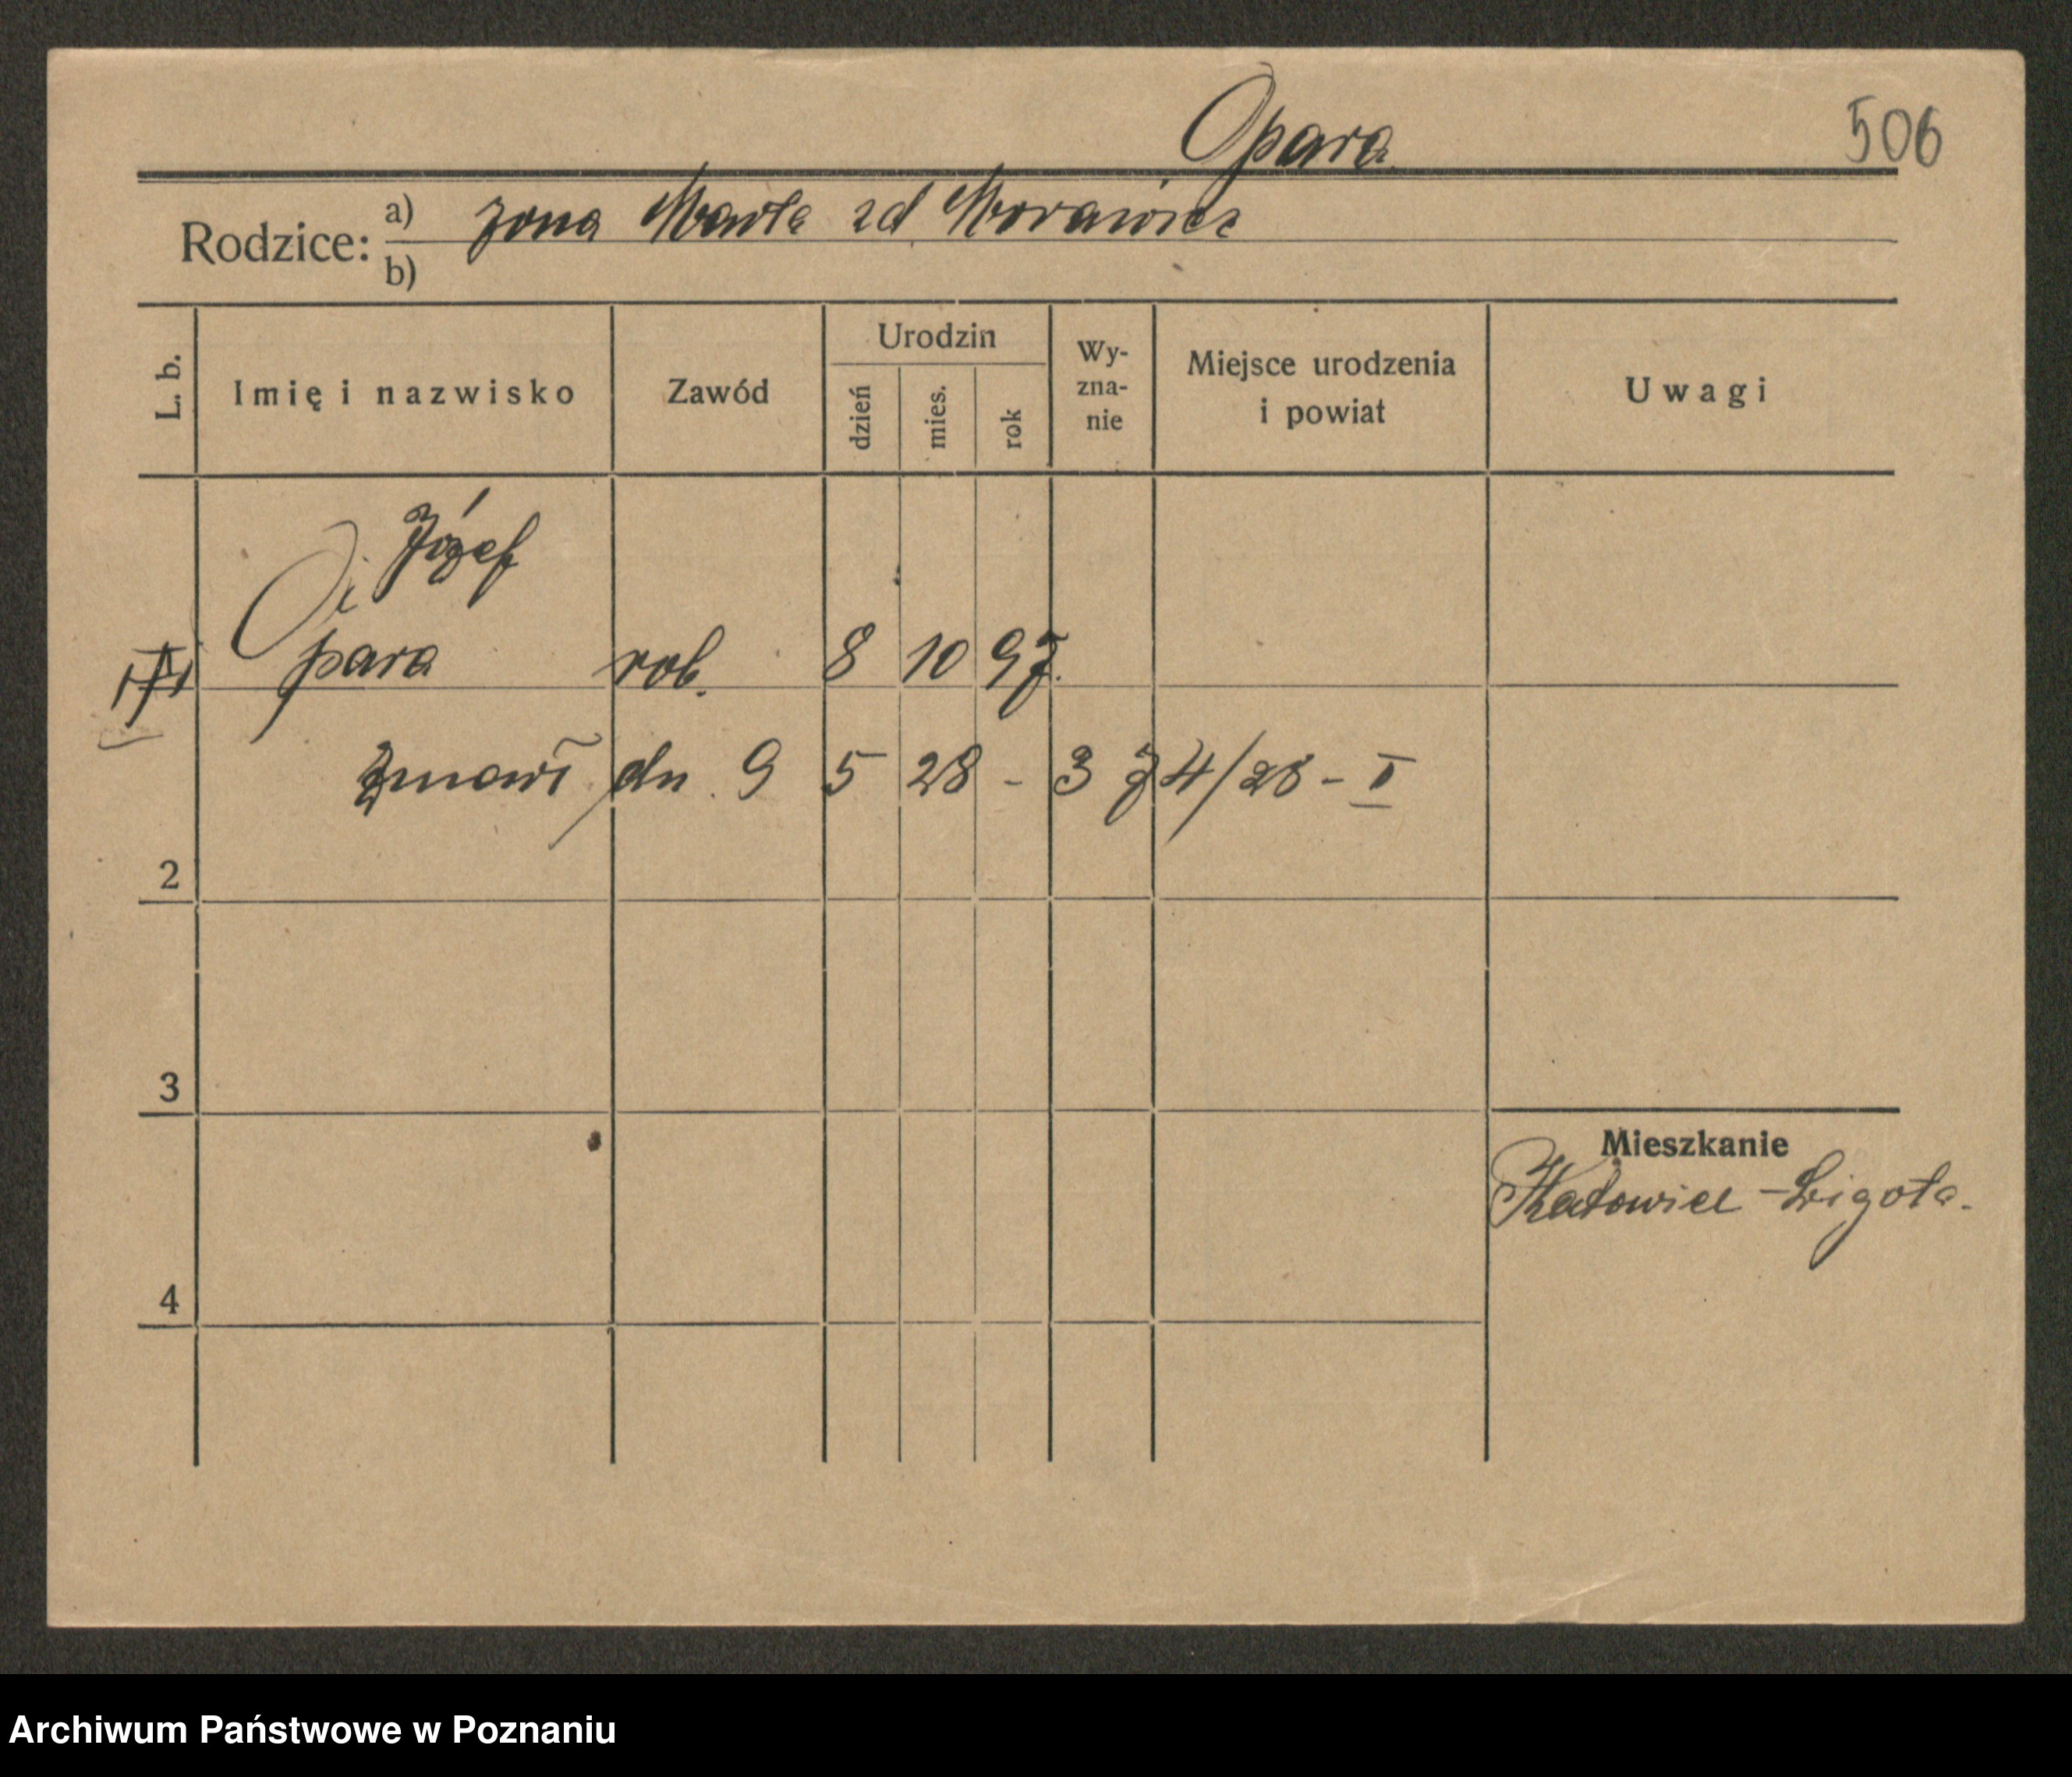 Opara
506
Rodzice:
a) żona Marta zd Morawiec
b)
L. b.
Imię i nazwisko
Zawód
Urodzin
dzień
mies.
rok
Wy-
zna-
nie
Miejsce urodzenia
i powiat
Uwagi
Józef
Opara rob. 8 10 97.
dn. 9 5 28 - 3 Z 4/28 - I
2
3
4
Mieszkanie
Katowice - Ligota.
Archiwum Państwowe w Poznaniu